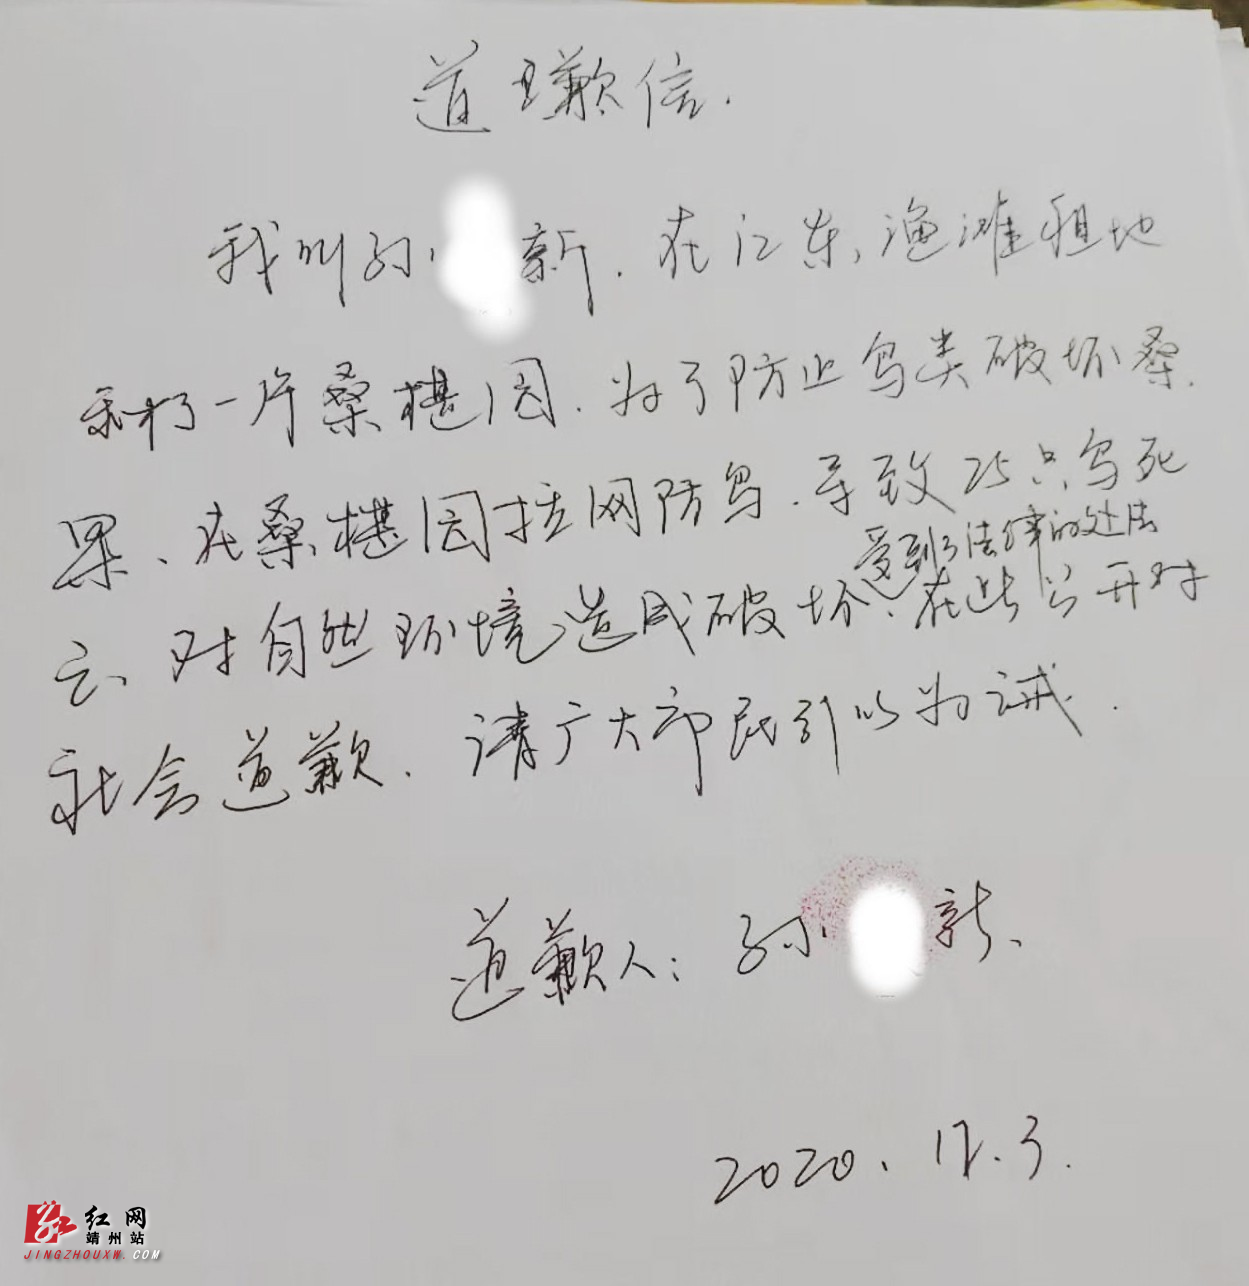 道歉信.
我叫孙 新.在江东、渔滩租地
种了一片桑椹园.为了防止鸟类破坏桑
果、在桑椹园拉网防鸟.导致25只鸟死
受到了法律的处法
亡、对自然环境造成破坏、在此公开对
社会道歉.请广大市民引以为诫.
道歉人:孙 新、
2020.12.3.
红网
靖州站
JINGZHOUXW.COM